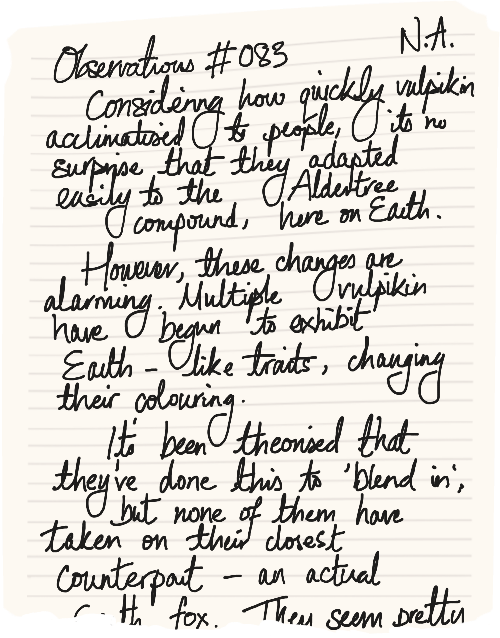 N.A.
Observations #083
Considering how quickly vulpikin
acclimatised to people, its no
surprise that they adapted
easily to the Aldertree
compound, here on Earth.
However, these changes are
alarming. Multiple vulpikin
have begun to exhibit
Earth - like traits, changing
their colouring.
It's been theorised that
they've done this to 'blend in',
but none of them have
taken on their closest
counterpart - an actual
fox. They seem pretty